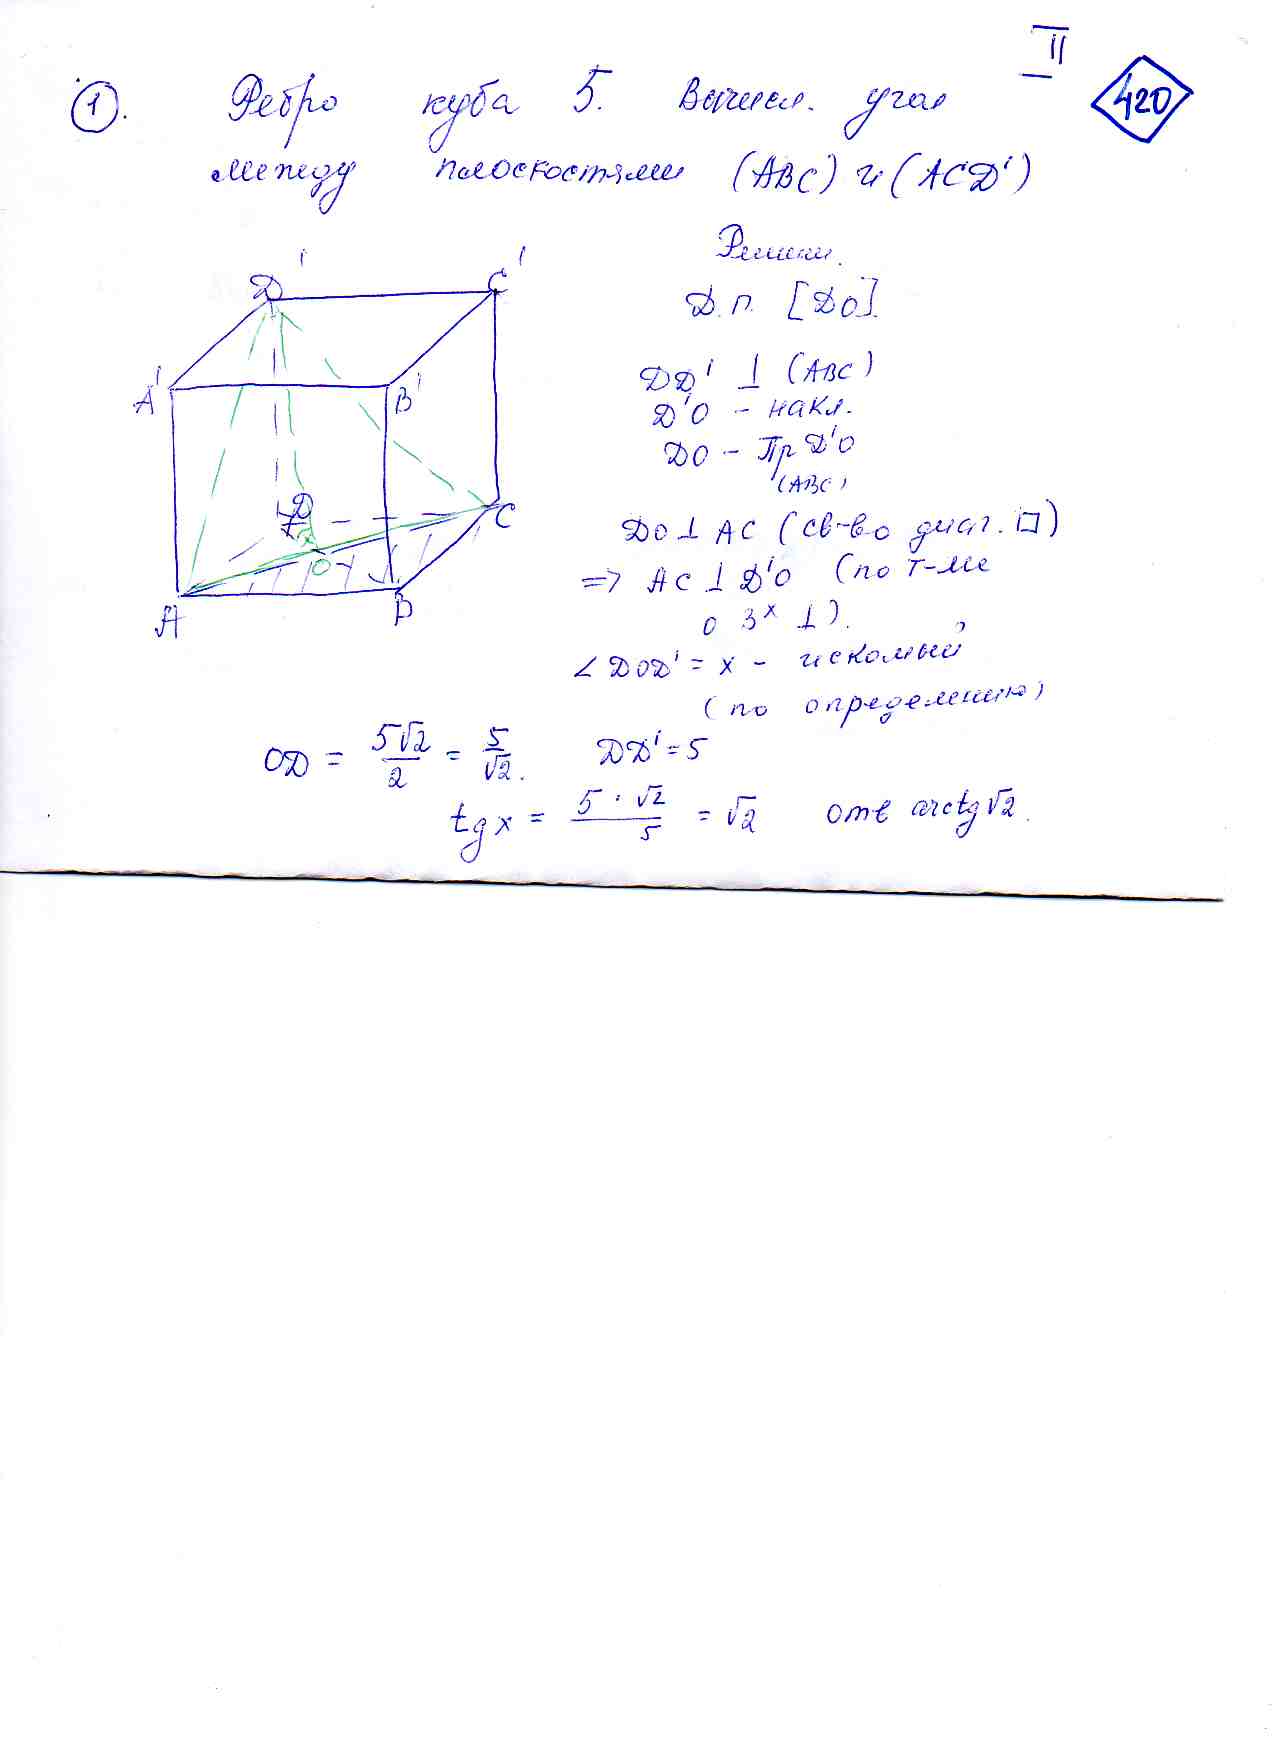 II
420
1. Ребро куба 5. Вычисл. угол
между плоскостями (ABC) и (ACD')
Решим.
Д.п. [DO].
D' C'
A' B'
D C
O
A B
x
DD' ⊥ (ABC)
D'O - накл.
DO - Пр D'O
(ABC)
DO ⊥ AC (св-во диаг. □)
=> AC ⊥ D'O (по т-ме
о 3х ⊥).
∠DOD' = x - искомый
(по определению)
OD = 5√2/2 = 5/√2. DD' = 5
tg x = 5·√2/5 = √2 отв arctg√2.